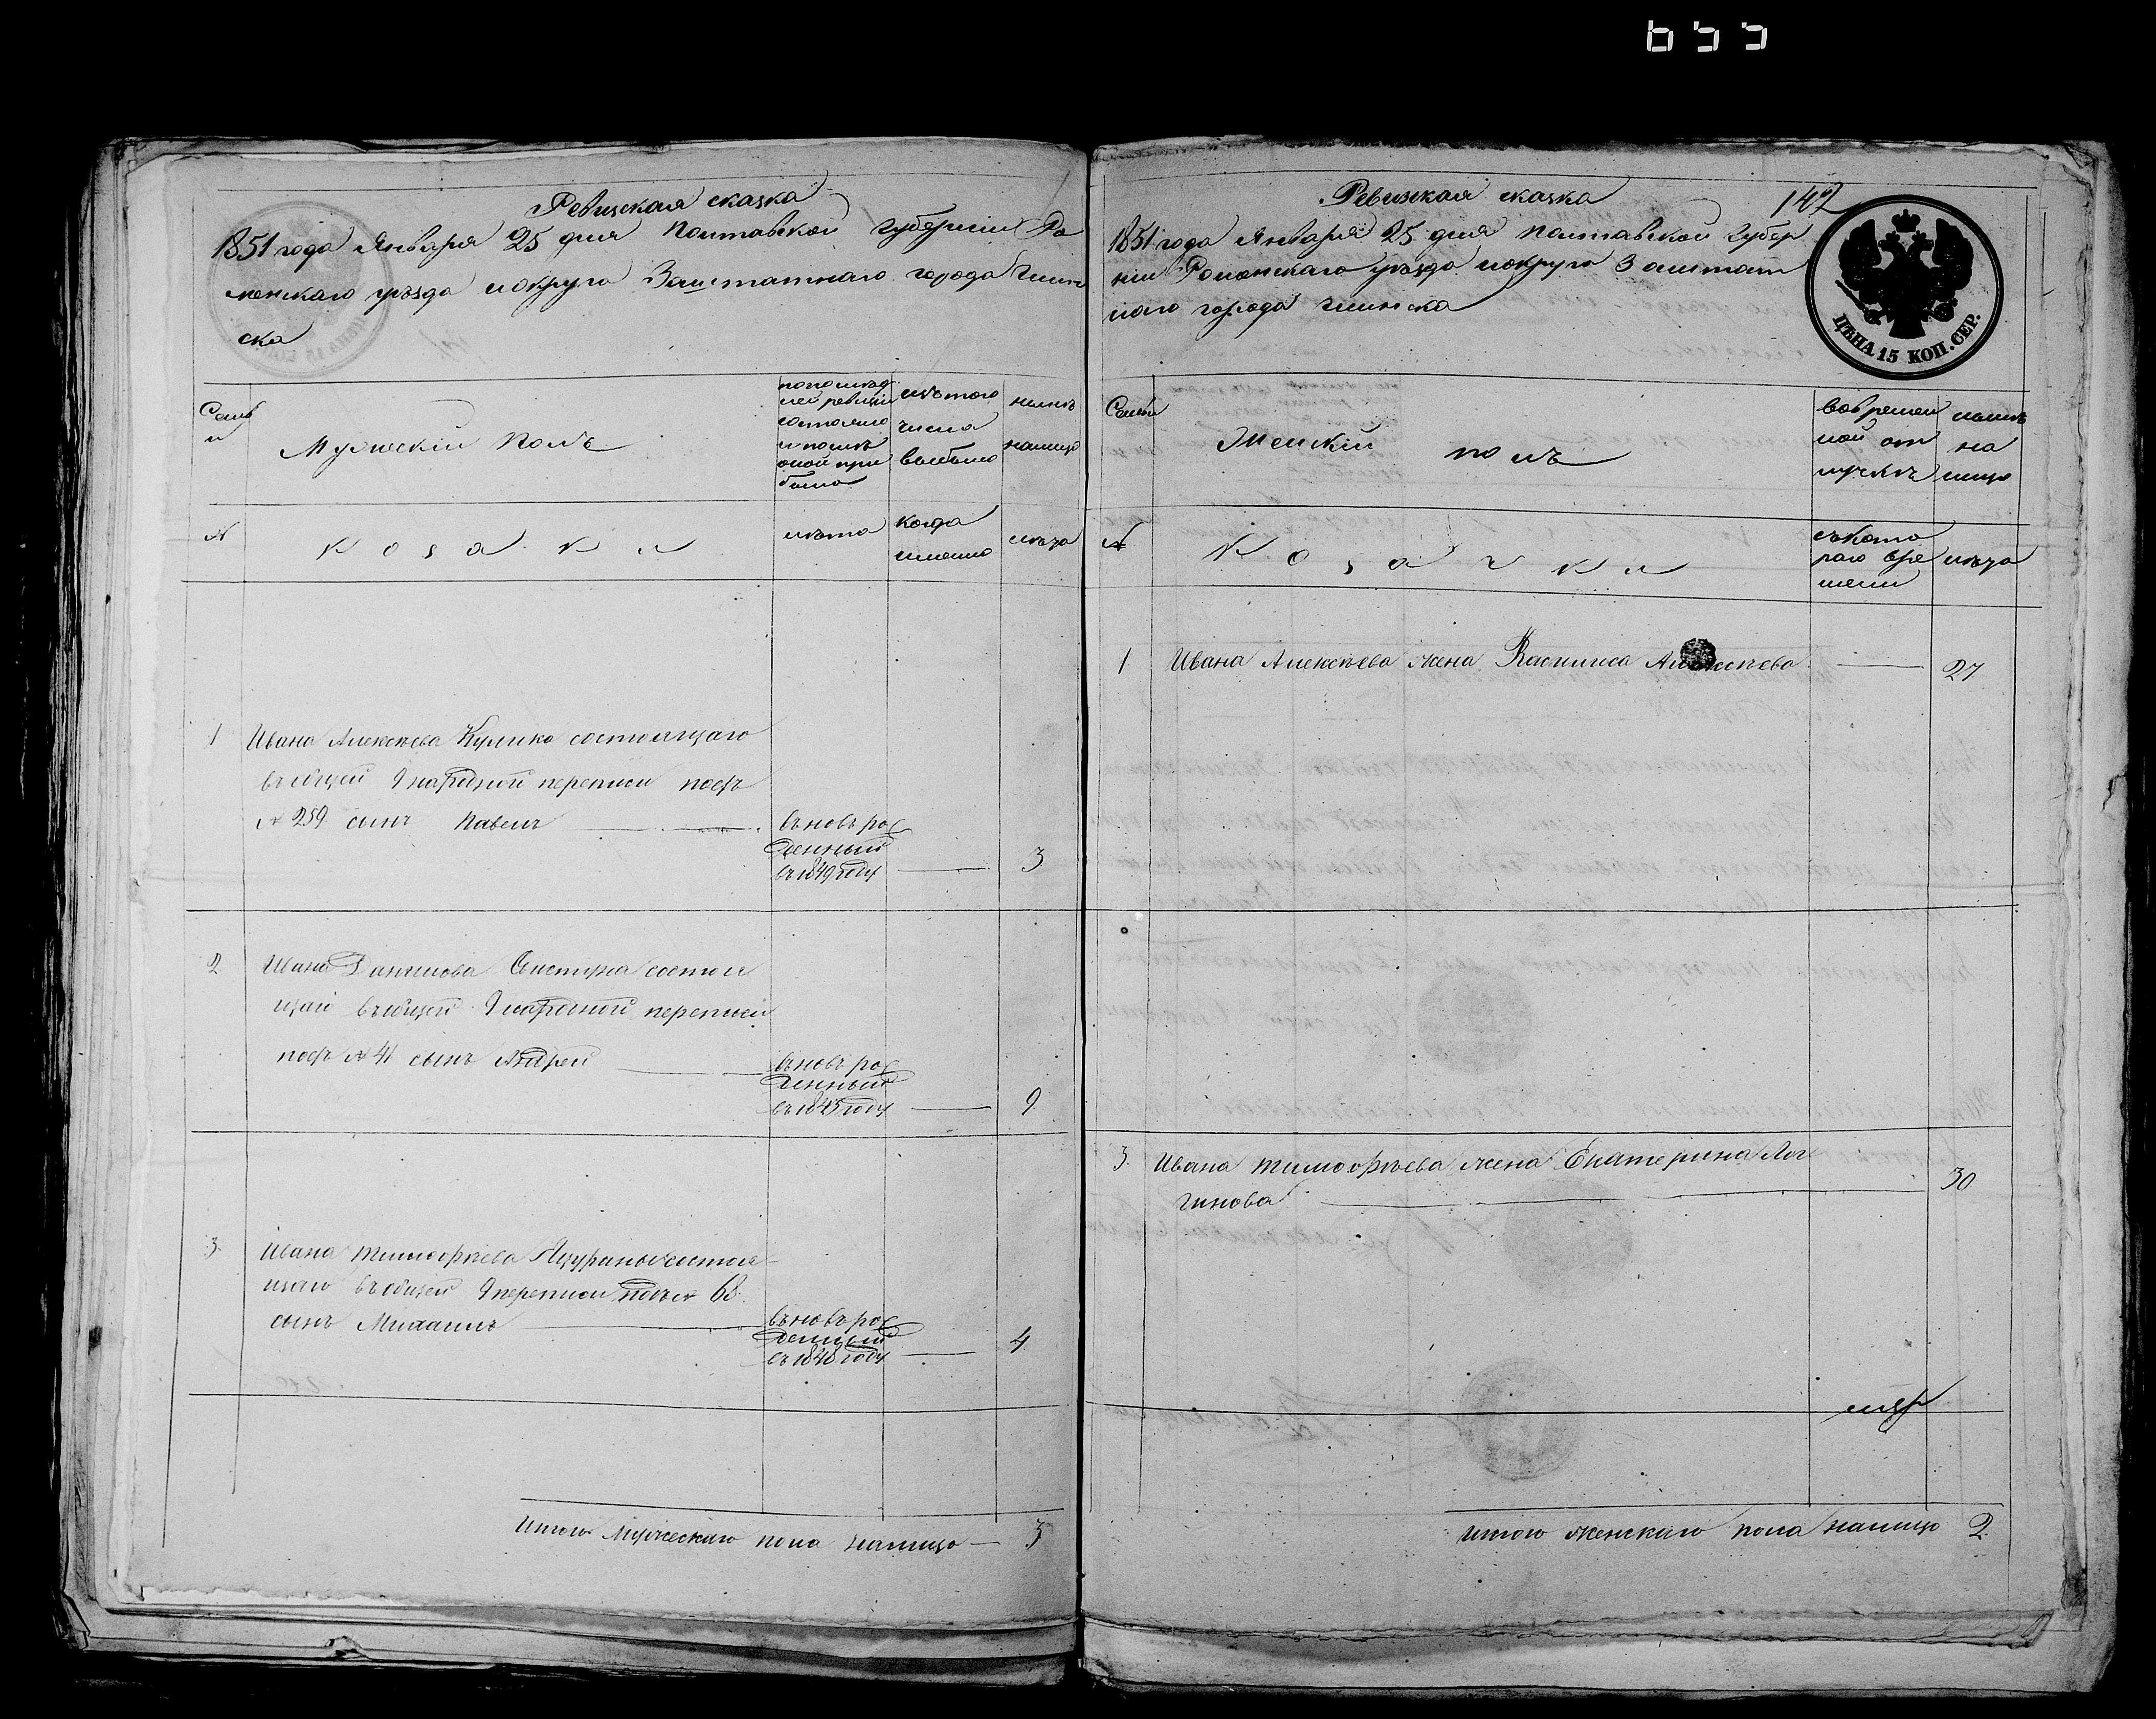 655
Ревизская сказка
1851 года Января 25 дня Полтавской Губернии Ро
менскаго уѣзда и округа Заштатнаго города Глин
ска
Семьи
Мужескій Полъ
по послѣд
ней ревизіи
состояло
и послѣ
оной при
было
изъ того
числа
выбыло
нынѣ
налицо
№
Козаки
лѣта
когда
именно
лѣта
1 Ивана Алексѣева Кулика состоящаго
въ общей 9 народной переписи подъ
№ 259 сынъ Павелъ
въновь рож
денный
въ 1849 году
3
2 Ивана Данилова состоя
щаго въ общей 9 народной переписи
подъ № 41 сынъ Андрей
въновь рож
денный
въ 1843 году
9
3 Ивана Тимофѣева состоя
щаго въ общей 9 переписи подъ № 68
сынъ Михаилъ
въновь рож
денный
въ 1848 году
4
Итого Мужескаго пола налицо 3
Ревизская сказка
147
1851 года Января 25 дня Полтавской Губер
ніи Роменскаго уѣзда и округа Заштат
наго города Глинска
ЦѢНА 15 КОП. СЕР.
Семьи
Женскій полъ
во времен
ной от
лучкѣ
нынѣ
на
лицо
№
Козачки
съ кото
раго вре
мени
лѣта
1 Ивана Алексѣева жена Алексѣева 27
3 Ивана Тимофѣева жена Екатерина Лог
гинова 30
Итого женскаго пола налицо 2